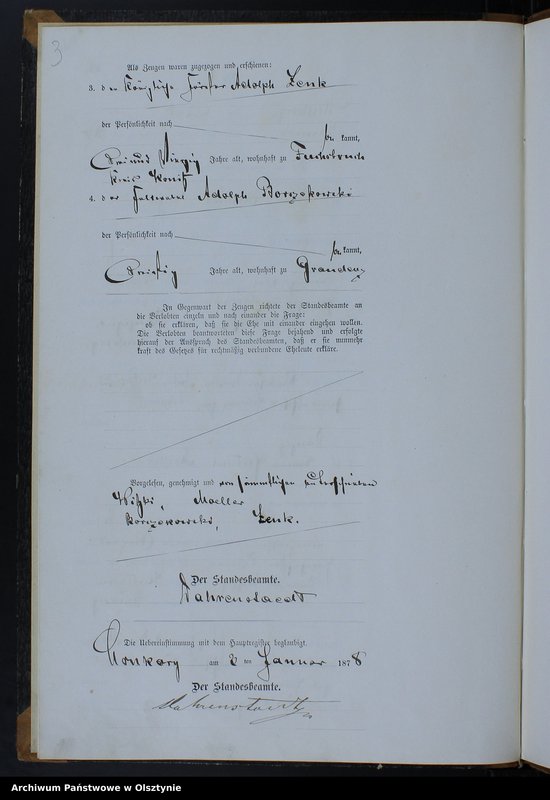 3
Als Zeugen waren zugezogen und erschienen:
3. der Königliche Förster Adolph Zenk
der Persönlichkeit nach
be kannt,
Drei und Vierzig Jahre alt, wohnhaft zu
Kreis Konitz
4. der Adolph Borzykowski
der Persönlichkeit nach
be kannt,
Dreißig Jahre alt, wohnhaft zu Graudenz
In Gegenwart der Zeugen richtete der Standesbeamte an
die Verlobten einzeln und nach einander die Frage:
ob sie erklären, daß sie die Ehe mit einander eingehen wollen.
Die Verlobten beantworteten diese Frage bejahend und erfolgte
hierauf der Ausspruch des Standesbeamten, daß er sie nunmehr
kraft des Gesetzes für rechtmäßig verbundene Eheleute erkläre.
Vorgelesen, genehmigt und von sämmtlichen unterschrieben
Moeller
Borzykowski, Zenk.
Der Standesbeamte.
Wahrenstaedt
Die Uebereinstimmung mit dem Hauptregister beglaubigt.
am 2 ten Januar 1878
Der Standesbeamte.
Wahrenstaedt
Archiwum Państwowe w Olsztynie